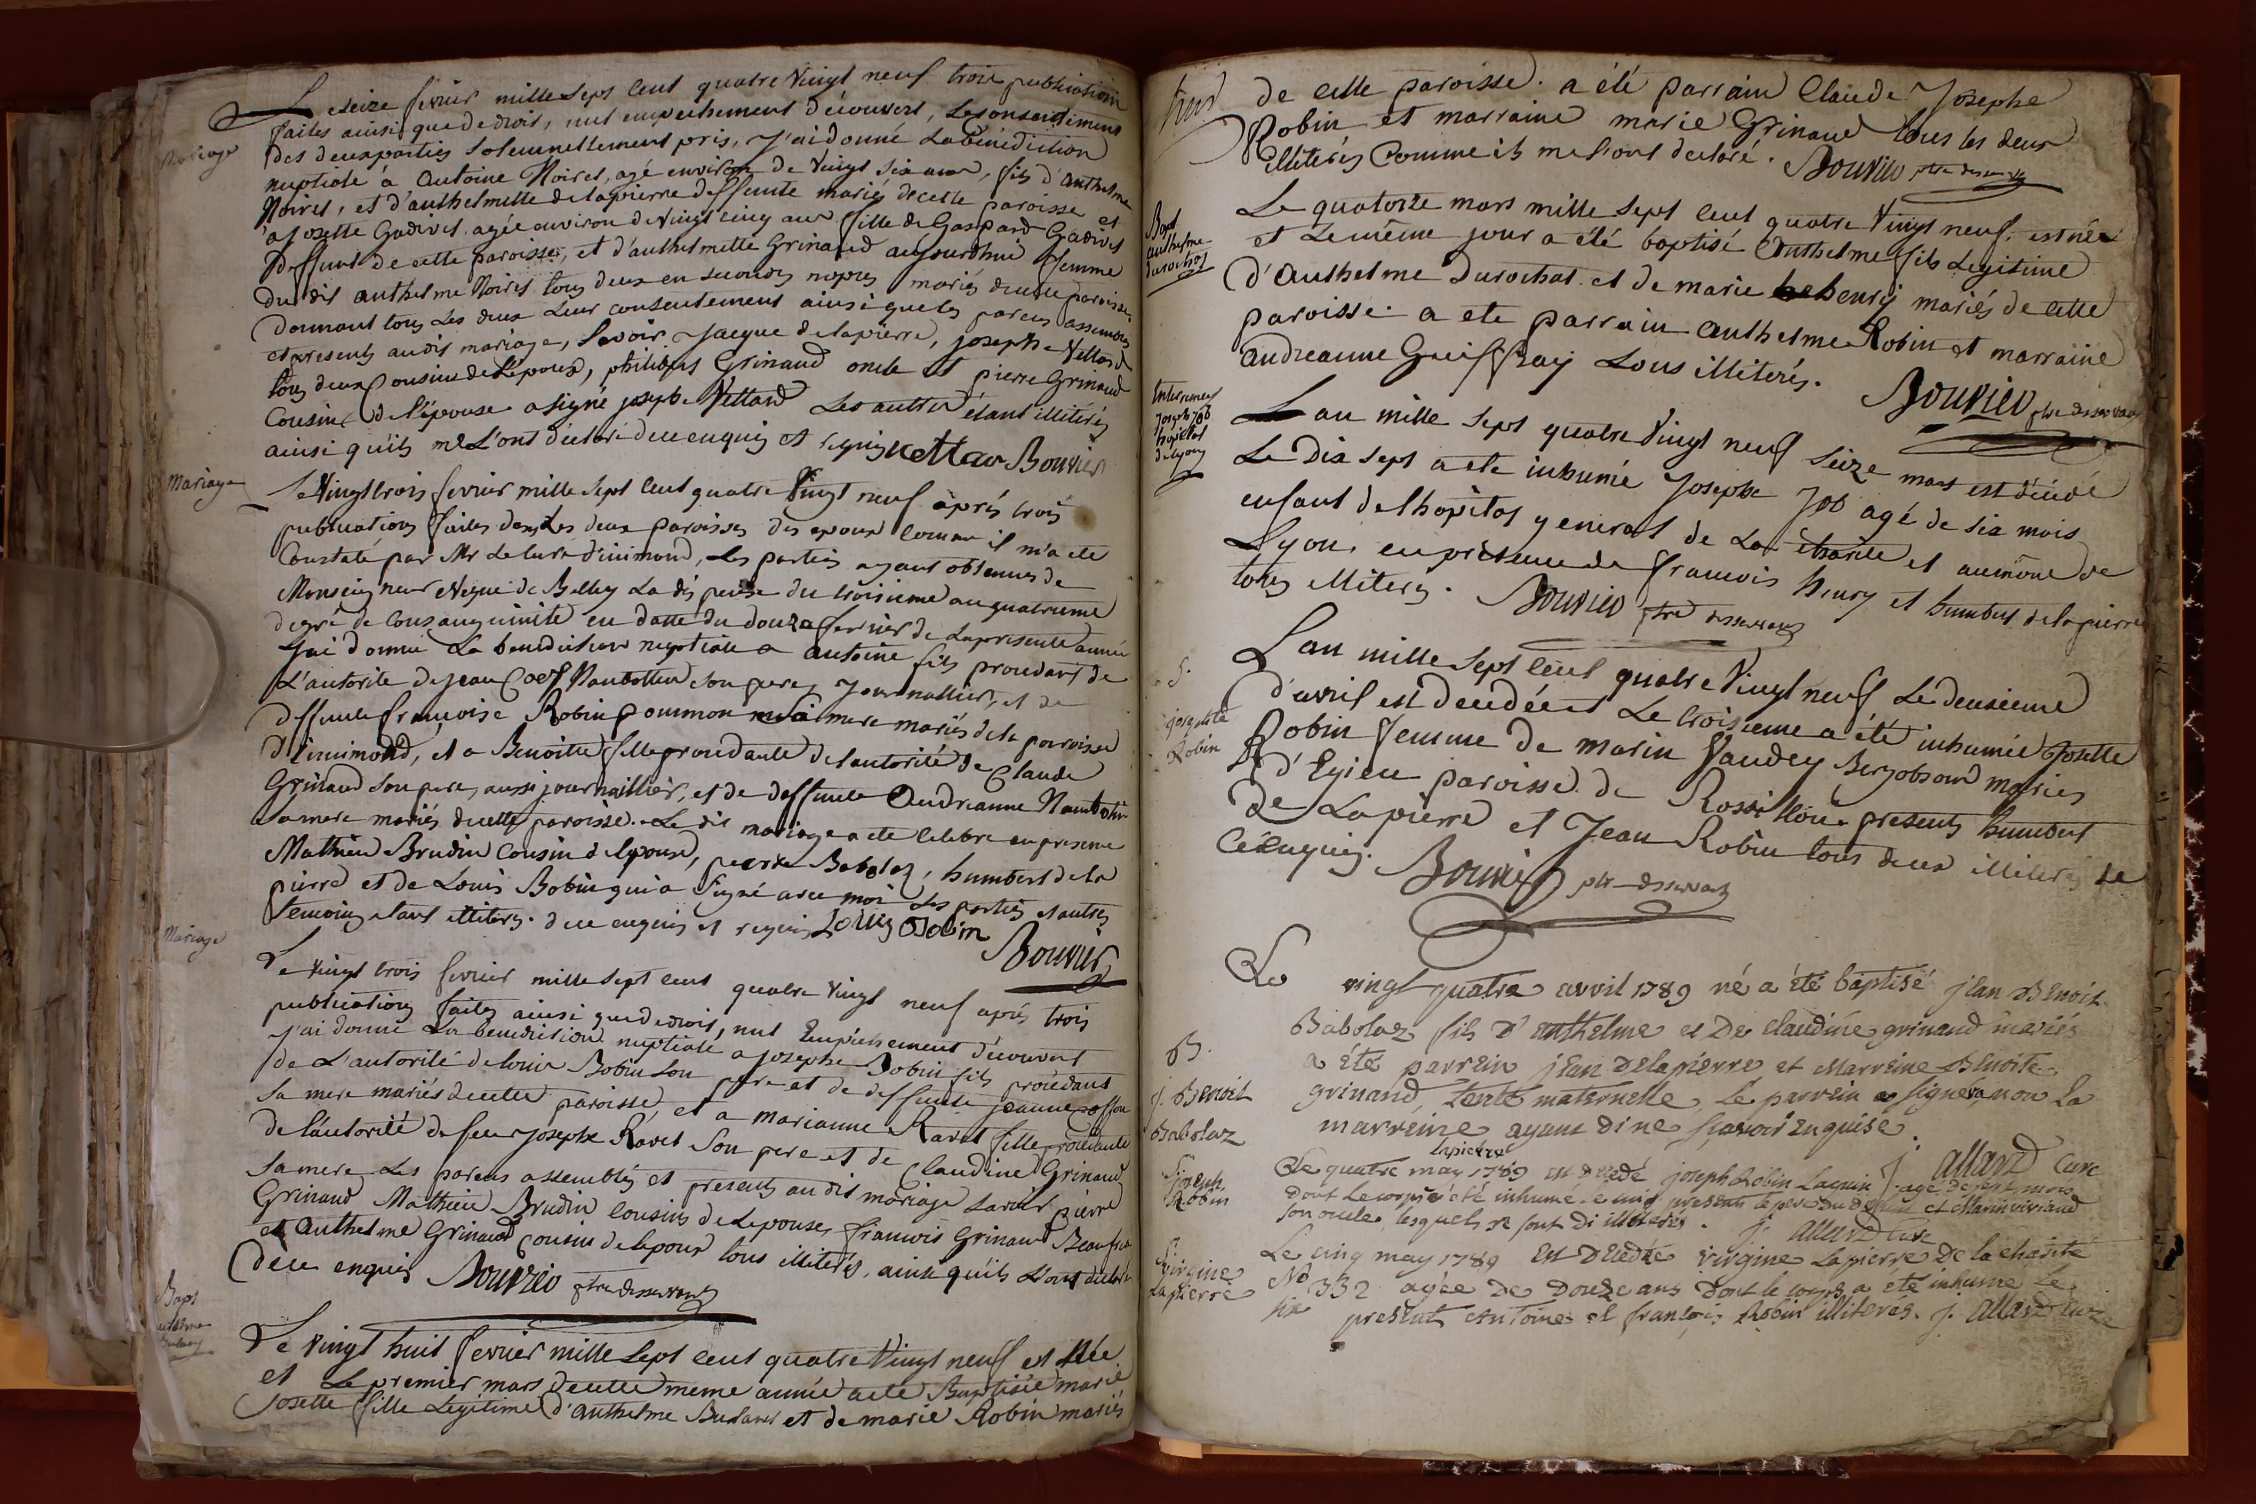 Le seize fevrier mille sept cent quatre vingt neuf trois publications
faites ainsi que de droit, nul empechement découvert, le consentiment
Mariage
des deux parties solemnellement pris, j'ai donné la bénédiction
nuptiale à antoine Noiret, agé environ de vingt six ans, fils d'anthelme
Noiret, et d'anthelmette delapierre deffunte mariés de cette paroisse et
a josette Gadivet agée environ de vingt cinq ans fille de Gaspard Gadivet
deffunt de cette paroisse, et d'anthelmette Grinand aujourdhui femme
du dit anthelme Noiret tous deux en secondes nopces mariés de cette paroisse
donnant tous les deux leur consentement ainsi que les parens assemblés
et presents au dit mariage, savoir jacque delapierre, joseph Vettard
tous deux cousins de l'epoux, philibert Grinand oncle et pierre Grinand
cousin de l'épouse a signé joseph Vettard les autres étant illiterés
ainsi qu'ils me l'ont déclaré de ce enquis et requis vettar Bouvier
Mariage
Le vingt trois fevrier mille sept cent quatre vingt neuf après trois
publications faites dans les deux paroisses des epoux comme il m'a ete
constaté par Mr le curé d'inimond, les parties ayant obtenues de
Monseigneur Eveque de Belley la dispense du troisieme au quatrieme
degré de consanguinité en datte du douze fevrier de la presente année
j'ai donné la benediction nuptiale a antoine fils procedant de
l'autorité de jean Nambottin son pere, journallier, et de
deffunte françoise Robin mere mariés de la paroisse
d'inimond, et a Benoitte fille procedante de l'autorité de Claude
Grinand son pere, aussi journaillier, et de deffunte Andréanne Nambotin
sa mere mariés de cette paroisse. Le dit mariage a ete celebré en presence
Mathieu Brudin cousin de l'epouse, pierre Babolaz, humbert dela
pierre et de Louis Bobin qui a signé avec moi les parties et autres
temoins etant illiteres. de ce enquis et requis Louis Bobin
Bouvier
Mariage
Le vingt trois fevrier mille sept cent quatre vingt neuf après trois
publications faites ainsi que de droit, nul Empechement découvert
j'ai donné la benediction nuptiale a josephe Bobin fils procedant
de l'autorité de louis Bobin son pere et de deffunte jeanne
sa mere mariés de cette paroisse, et a marianne Ravet fille procedante
de l'autorité de feu josephe Ravet son pere et de Claudine Grinand
sa mere les parens assemblés et presents au dit mariage savoir pierre
Grinand Mathieu Brudin cousins de l'epouse, francois Grinand Beaufrere
et anthelme Grinand cousin de l'epoux tous illiterés, ainsi qu'ils l'ont declaré
de ce enquis Bouvier ptre desservant
Bapt
Le vingt huit fevrier mille sept cent quatre vingt neuf est Née
et Le premier mars de cette meme année a ete Baptisée marie
josette fille legitime d'anthelme et de marie Robin mariés
de cette paroisse. a été parrain Claude Josephe
Robin et marraine marie Grinand tous les deux
illiterés comme ils me l'ont declaré. Bouvier ptre desservant
Bapt
anthelme
durochat
Le quatorze mars mille sept cent quatre vingt neuf, est né
et le même jour a été baptisé Anthelme fils legitime
d'Anthelme durochat et de marie henry mariés de cette
paroisse. a ete parrain anthelme Robin et marraine
andreanne Guiffray tous illiterés.
Bouvier ptre desservant
Interrement
Joseph Job
hopital
de Lyon
L'an mille sept quatre vingt neuf seize mars est décédé
Le dix sept a ete inhumé Josephe Job agé de six mois
enfant de l'hopital general de la charité et aumône de
Lyon, en présence de francois henry et humbert delapierre
tous illiteres. Bouvier ptre desservant
S.
josette
Robin
L'an mille sept cent quatre vingt neuf le deuxieme
d'avril est decedée et Le troisieme a été inhumée Josette
Robin femme de marin vaudey mariés
d'Egieu paroisse de Rossillon. presents humbert
De Lapierre et Jean Robin tous deux illiterés de
ce enquis. Bouvier ptre desservant
B.
j. Benoit
Babolaz
Le vingt quatre avril 1789 né a été baptisé jean Benoit
Babolaz fils D'anthelme et De claudine grinand mariés
a été parrein jean Delapierre et Marreine Benoite
grinand, tente maternelle, Le parrein a signé, non La
marreine ayant di ne scavoir enquise.
j. allard curé
S. joseph
Robin
lapierre
Le quatre may 1789 est decedé joseph Robin agé de sept mois
dont le corps a été inhumé le cinq presents le pere du defunt et Marin
son oncle, lesquels se sont di illiterés. j. allard curé
S. virgine
Lapierre
Le cinq may 1789 est Decedée virgine Lapierre De la charité
No 332 agée De Douze ans Dont le corps a été inhumé le
six presents Antoine et françois Robin illiteres. j. allard curé